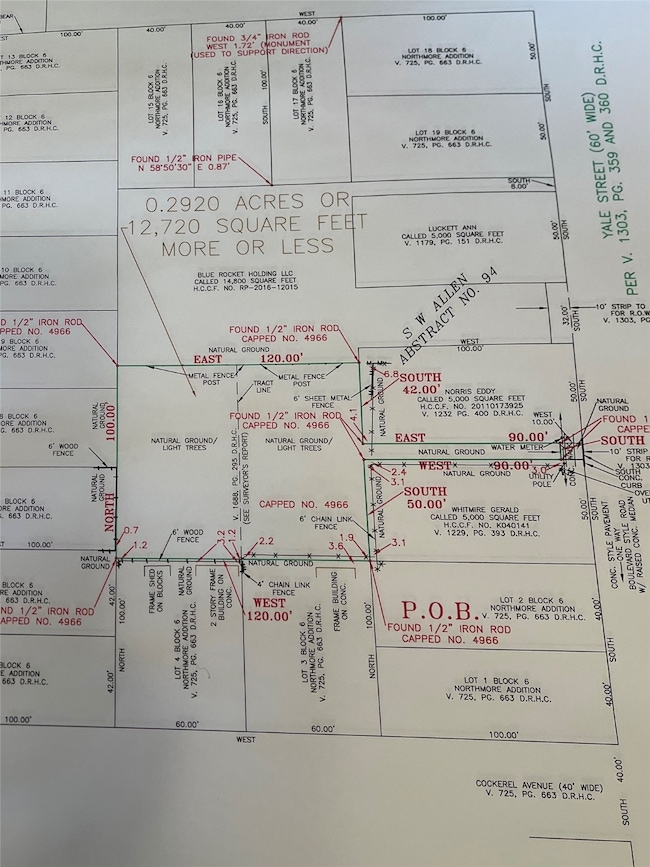 BEAR
WEST
100.00'
40.00'
40.00'
40.00'
100.00'
FOUND 3/4" IRON ROD
WEST 1.72' (MONUMENT
(USED TO SUPPORT DIRECTION)
T 13 BLOCK 6
NORTHMORE ADDITION
PG. 663 D.R.H.C.
LOT 15 BLOCK 6
NORTHMORE ADDITION
V. 725, PG. 663 D.R.H.C.
LOT 16 BLOCK 6
NORTHMORE ADDITION
V. 725, PG. 663 D.R.H.C.
SOUTH 100.00'
LOT 17 BLOCK 6
NORTHMORE ADDITION
V. 725, PG. 663 D.R.H.C.
LOT 18 BLOCK 6
NORTHMORE ADDITION
V. 725, PG. 663 D.R.H.C.
50.00'
SOUTH
12 BLOCK 6
HMORE ADDITION
PG. 663 D.R.H.C.
LOT 19 BLOCK 6
NORTHMORE ADDITION
V. 725, PG. 663 D.R.H.C.
50.00'
YALE STREET (60' WIDE)
PER V. 1303, PG. 359 AND 360 D.R.H.C.
FOUND 1/2" IRON PIPE
N 58°50'30" E 0.87'
SOUTH
8.00'
11 BLOCK 6
MORE ADDITION
PG. 663 D.R.H.C.
0.2920 ACRES OR
12,720 SQUARE FEET
MORE OR LESS
LUCKETT ANN
CALLED 5,000 SQUARE FEET
V. 1179, PG. 151 D.R.H.C.
50.00'
SOUTH
BLUE ROCKET HOLDING LLC
CALLED 14,800 SQUARE FEET
H.C.C.F. NO. RP-2016-12015
10 BLOCK 6
MORE ADDITION
PG. 663 D.R.H.C.
S W ALLEN
ABSTRACT NO. 94
10' STRIP TO
FOR R.O.W
V. 1303, PG
32.00'
SOUTH
D 1/2" IRON ROD
PPED NO. 4966
9 BLOCK 6
ORE ADDITION
663 D.R.H.C.
FOUND 1/2" IRON ROD
CAPPED NO. 4966
NATURAL GROUND
EAST 120.00'
WEST
100.00'
METAL FENCE
POST
TRACT
LINE
METAL FENCE
POST
6' SHEET METAL
FENCE
6.8
SOUTH
42.00'
NORRIS EDDY
CALLED 5,000 SQUARE FEET
H.C.C.F. NO. 20110173925
V. 1232 PG. 400 D.R.H.C.
50.00'
SOUTH
NATURAL
GROUND
100.00'
NORTH
8 BLOCK 6
ORE ADDITION
663 D.R.H.C.
FOUND 1/2" IRON ROD
CAPPED NO. 4966
4.1
NATURAL GROUND
WEST
10.00'
NATURAL
GROUND
FOUND 1
CAPPE
SOUTH
NATURAL GROUND/
LIGHT TREES
V. 1688, PG. 295 D.R.H.C.
(SEE SURVEYOR'S REPORT)
NATURAL GROUND/
LIGHT TREES
EAST 90.00'
NATURAL GROUND
WATER METER
6' WOOD
FENCE
WEST 90.00'
3.0
UTILITY
POLE
CONC.
10' STRIP
FOR R
V. 1303
SOUTH
CONC.
CURB
OVE
NATURAL
GROUND
2.4
3.1
SOUTH
50.00'
CAPPED NO. 4966
BLOCK 6
ORE ADDITION
663 D.R.H.C.
6' CHAIN LINK
FENCE
NATURAL GROUND
WHITMIRE GERALD
CALLED 5,000 SQUARE FEET
H.C.C.F. NO. K040141
V. 1229, PG. 393 D.R.H.C.
50.00'
SOUTH
CONC. STYLE PAVEMENT
ONE WAY ROAD
BOULEVARD STYLE ROAD
W/ RAISED CONC. MEDIAN
0.7
1.2
6' WOOD
FENCE
3.2
1.2
2.2
1.9
3.6
3.1
100.00'
NATURAL
GROUND
NATURAL GROUND
4' CHAIN LINK
FENCE
WEST
120.00'
BLOCK 6
RE ADDITION
663 D.R.H.C.
ND 1/2" IRON ROD
CAPPED NO. 4966
42.00'
100.00'
NORTH
FRAME SHED
ON BLOCKS
NATURAL
GROUND
2 STORY FRAME
BUILDING ON
CONC.
FRAME BUILDING
ON CONC.
LOT 4 BLOCK 6
NORTHMORE ADDITION
V. 725, PG. 663 D.R.H.C.
LOT 3 BLOCK 6
NORTHMORE ADDITION
V. 725, PG. 663 D.R.H.C.
100.00'
NORTH
P.O.B.
LOT 2 BLOCK 6
NORTHMORE ADDITION
V. 725, PG. 663 D.R.H.C.
FOUND 1/2" IRON ROD
CAPPED NO. 4966
40.00'
SOUTH
BLOCK 6
ADDITION
663 D.R.H.C.
42.00'
LOT 1 BLOCK 6
NORTHMORE ADDITION
V. 725, PG. 663 D.R.H.C.
40.00'
100.00'
60.00'
60.00'
100.00'
WEST
COCKEREL AVENUE (40' WIDE)
V. 725, PG. 663 D.R.H.C.
SOUTH 40.00'